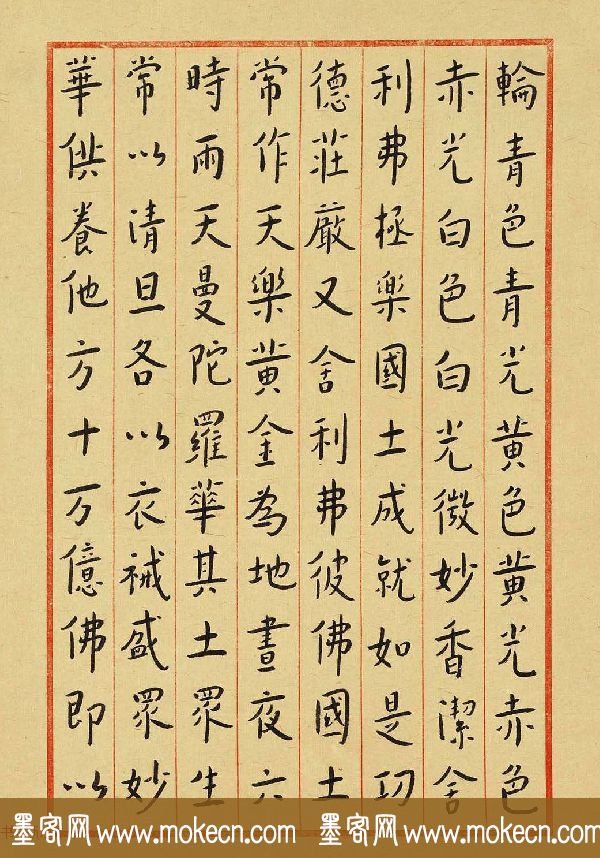 輪青色青光黄色黄光赤色
赤光白色白光微妙香潔舍
利弗極樂國土成就如是功
德莊嚴又舍利弗彼佛國土
常作天樂黄金為地晝夜六
時雨天曼陀羅華其土眾生
常以清旦各以衣祴盛眾妙
華供養他方十万億佛即以
墨客网 www.mokecn.com 墨客网 www.mokecn.com